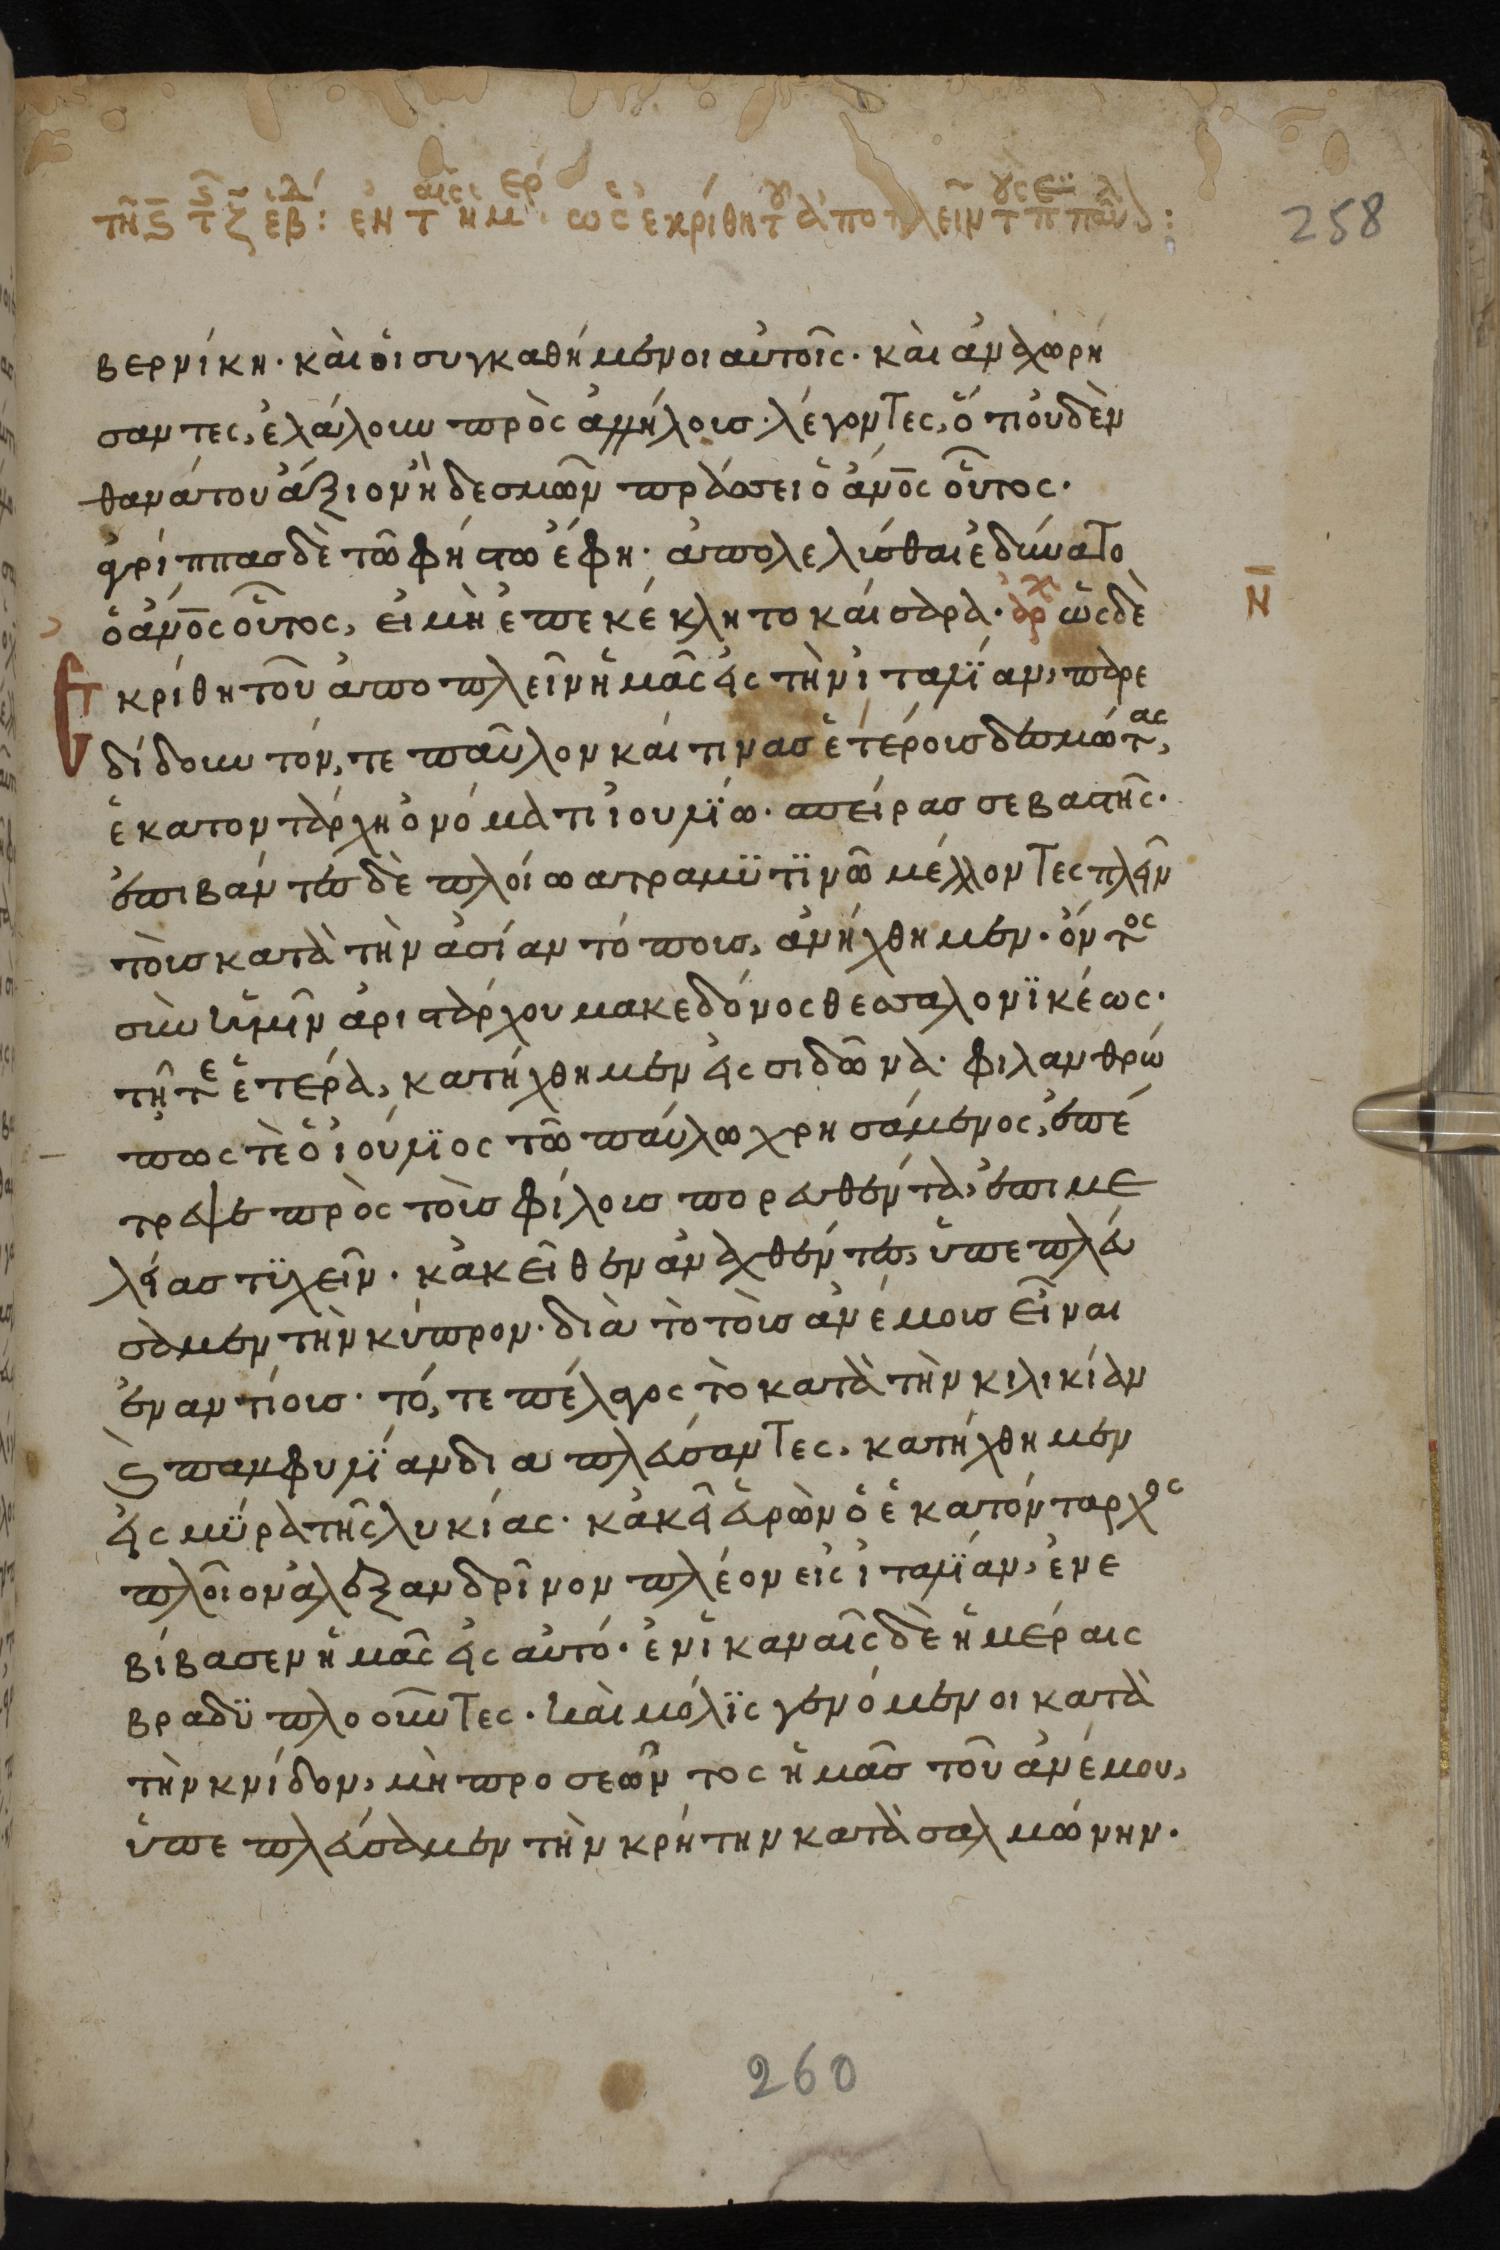 258
βερνίκη· καὶ οἱ συγκαθήμενοι αὐτοῖς· καὶ ἀναχωρή
σαντες, ἐλάλουν πρὸς ἀλλήλους· λέγοντες, ὅτι οὐδὲν
θανάτου ἄξιον ἢ δεσμῶν πράσσει ὁ ἀν̅ο̅ς οὗτος·
ἀγρίππας δὲ τῶ φήστω ἔφη· ἀπολελύσθαι ἐδύνατο
ὁ ἀν̅ο̅ς οὗτος, εἰ μὴ ἐπεκέκλητο καίσαρα· ἀρχ ὡς δὲ
Ν̅
ἐκρίθη τοῦ ἀποπλεῖν ἡμᾶς εἰς τὴν ἰταλΐαν, παρε
δίδουν τόν, τε παῦλον καί τινας ἑτέρους δεσμώτας,
ἑκατοντάρχη ὀνόματι ἰουλΐω· σπείρας σεβαστῆς·
ἐπιβάντες δὲ πλοίω ατραμϋτϊνῶ μέλλοντες πλεῖν
τοὺς κατὰ τὴν ἀσίαν τόπους, ἀνήχθημεν· ὄντος
σὺν ἡμῖν ἀριστάρχου μακεδόνος θεσσαλονϊκέως·
τῆ τε ἑτέρα, κατήχθημεν εἰς σιδῶνα· φιλανθρώ
πως τὲ ὁ ἰούλϊος τῶ παύλω χρησάμενος, ἐπέ
τρεψε πρὸς τοὺς φίλους πορευθέντα, ἐπιμε
λείας τϋχεῖν· κἀκεῖθεν ἀναχθέντες, ὑπεπλεύ
σαμεν τὴν κύπρον· διὰ τὸ τοὺς ἀνέμους εἶναι
ἐναντίους· τό, τε πέλαγος τὸ κατὰ τὴν κιλικίαν
ϗ παμφυλΐαν διαπλεύσαντες, κατήχθημεν
εἰς μϋρα τῆς λυκίας· κἀκεῖ εὑρὼν ὁ ἑκατόνταρχος
πλοῖον ἀλεξανδρῖνον πλέον εἰς ἰταλΐαν, ἐνε
βίβασεν ἡμᾶς εἰς αὐτό· ἐν ἱκαναῖς δὲ ἡμέραις
βραδϋπλοοῦντες· καὶ μόλϊς γενόμενοι κατὰ
τὴν κνίδον, μὴ προσεῶντος ἡμᾶς τοῦ ἀνέμου,
ὑπεπλεύσαμεν τὴν κρήτην κατὰ σαλμώνην·
260